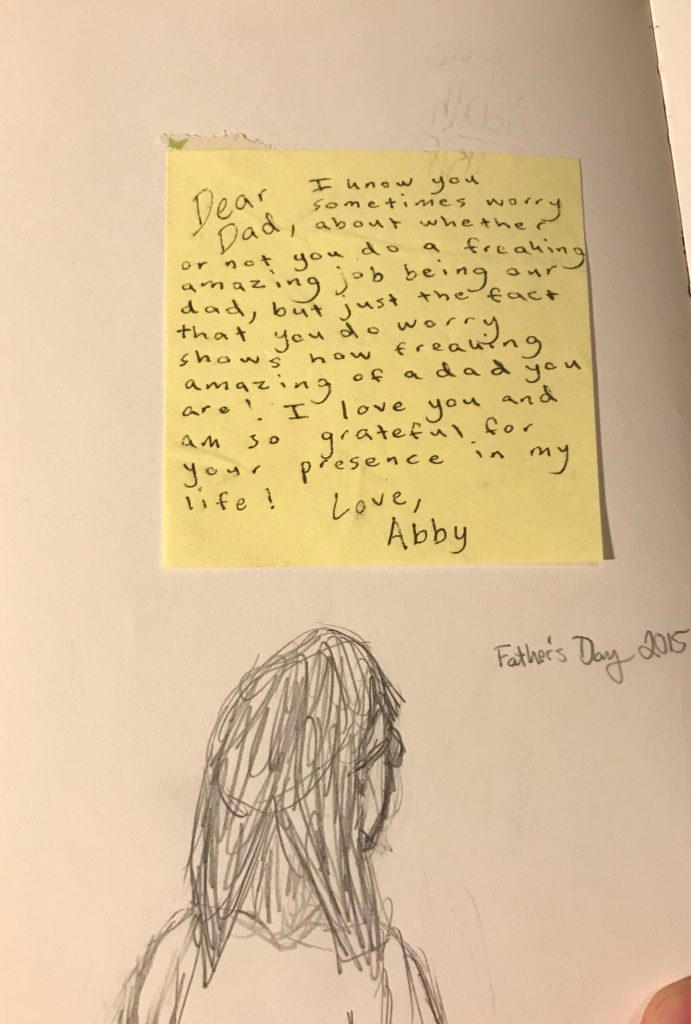 Dear Dad, I know you
sometimes worry
about whether
or not you do a freaking
amazing job being our
dad, but just the fact
that you do worry
shows how freaking
amazing of a dad you
are! I love you and
am so grateful for
your presence in my
life! Love,
Abby
Father's Day 2015